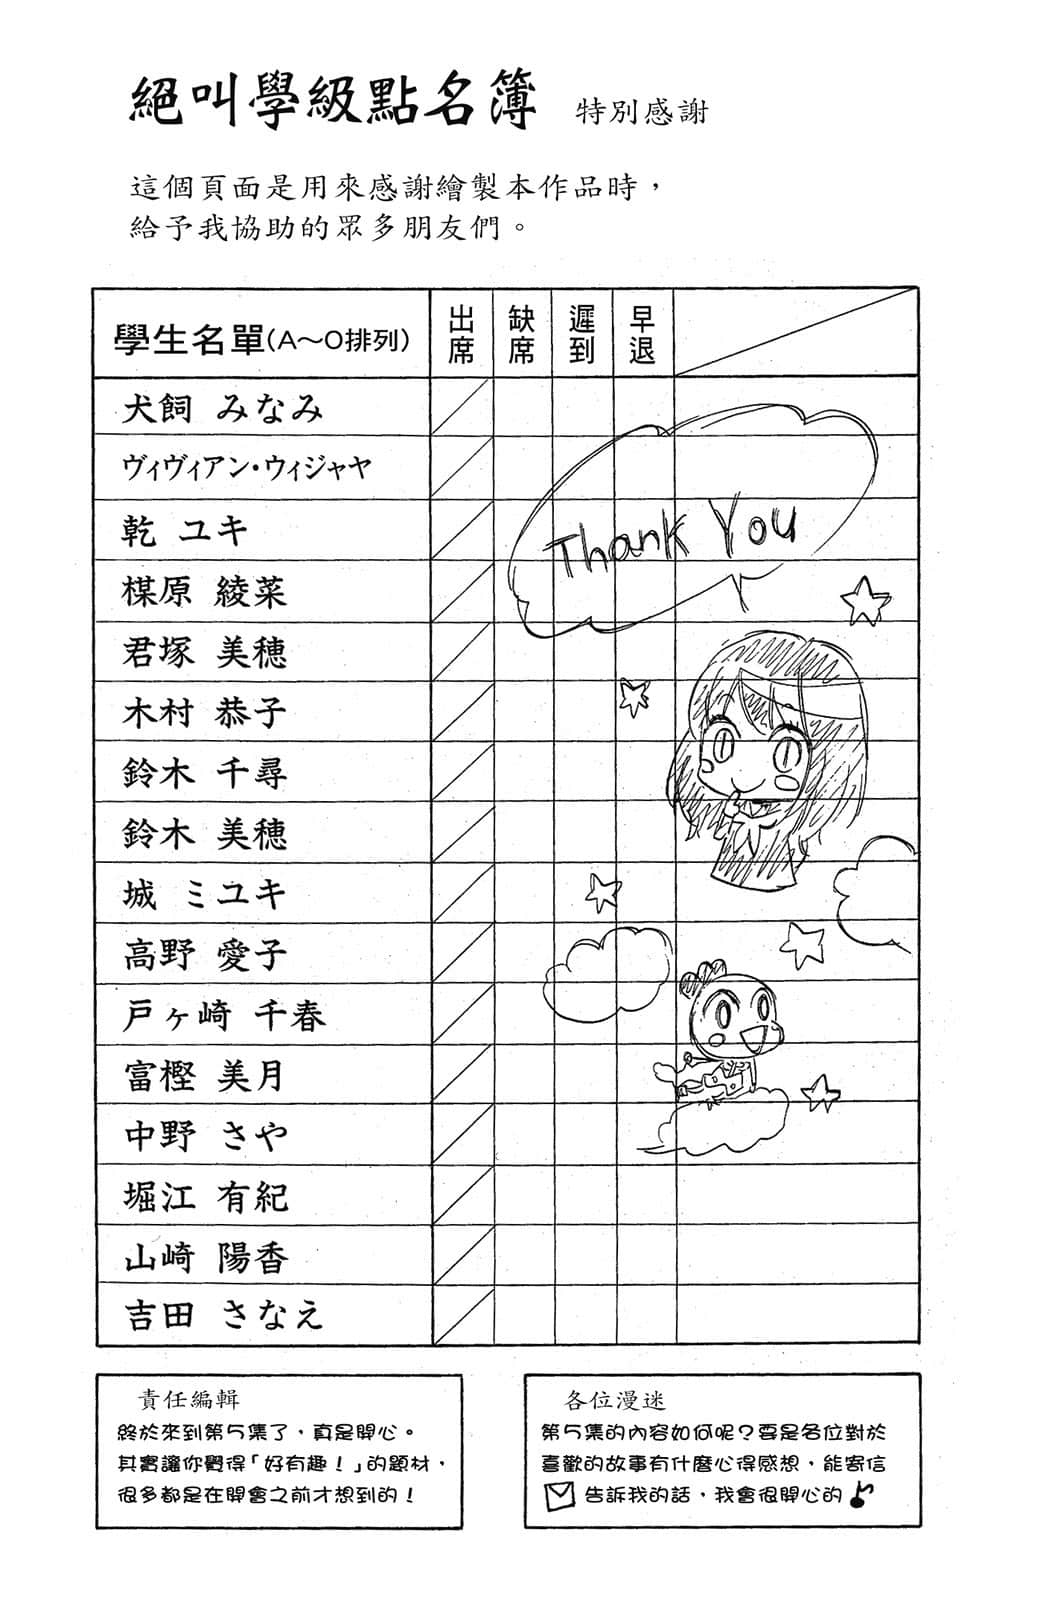 絕叫學級點名簿 特別感謝
這個頁面是用來感謝繪製本作品時，
給予我協助的眾多朋友們。
學生名單(A～O排列) 出席 缺席 遲到 早退
犬飼 みなみ
ヴィヴィアン・ウィジャヤ
乾 ユキ
楳原 綾菜
君塚 美穂
木村 恭子
鈴木 千尋
鈴木 美穂
城 ミユキ
高野 愛子
戸ヶ崎 千春
富樫 美月
中野 さや
堀江 有紀
山崎 陽香
吉田 さなえ
Thank You
責任編輯
終於來到第5集了，真是開心。
其實讓你覺得「好有趣！」的題材，
很多都是在開會之前才想到的！
各位漫迷
第5集的內容如何呢？要是各位對於
喜歡的故事有什麼心得感想，能寄信
告訴我的話，我會很開心的♪